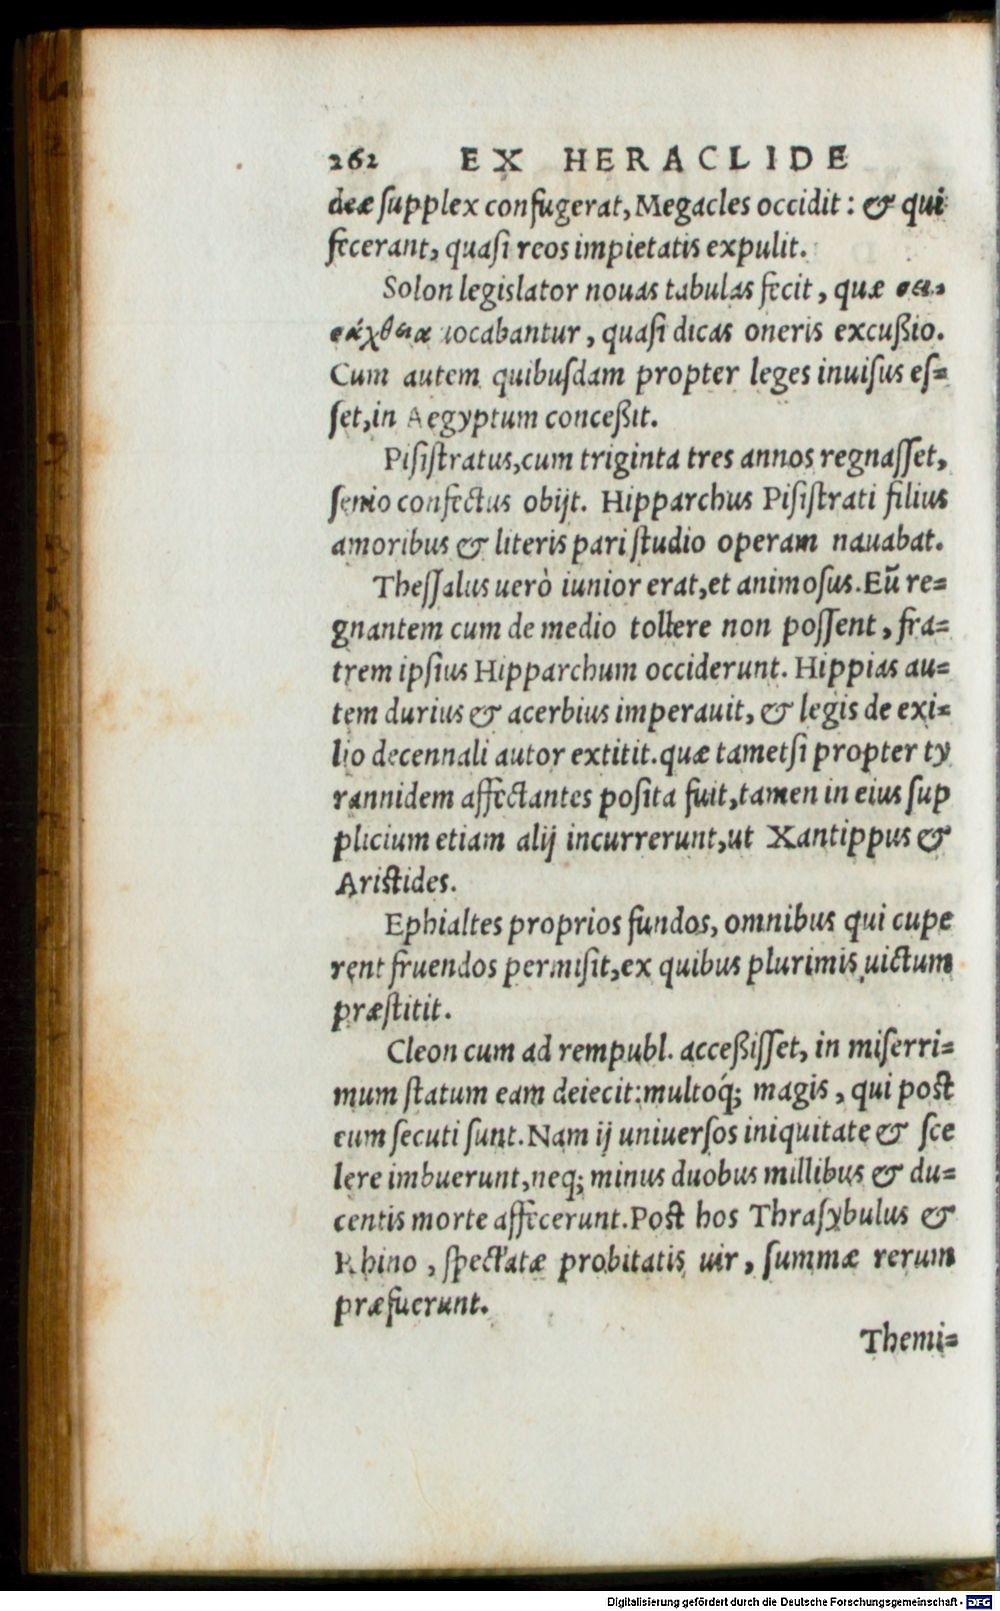 262 EX HERACLIDE
deæ supplex confugerat, Megacles occidit: & qui
fecerant, quasi reos impietatis expulit.
Solon legislator nouas tabulas fecit, quæ σει-
σάχθεια uocabantur, quasi dicas oneris excußio.
Cum autem quibusdam propter leges inuisus es=
set, in Aegyptum conceßit.
Pisistratus, cum triginta tres annos regnasset,
senio confectus obijt. Hipparchus Pisistrati filius
amoribus & literis pari studio operam nauabat.
Thessalus uerò iunior erat, et animosus. Eũ re=
gnantem cum de medio tollere non possent, fra=
trem ipsius Hipparchum occiderunt. Hippias au=
tem durius & acerbius imperauit, & legis de exi=
lio decennali autor extitit. quæ tametsi propter ty
rannidem affectantes posita fuit, tamen in eius sup
plicium etiam alij incurrerunt, ut Xantippus &
Aristides.
Ephialtes proprios fundos, omnibus qui cupe
rent fruendos permisit, ex quibus plurimis uictum
præstitit.
Cleon cum ad rempubl. acceßisset, in miserri=
mum statum eam deiecit: multoq́; magis, qui post
eum secuti sunt. Nam ij uniuersos iniquitate & sce
lere imbuerunt, neq; minus duobus millibus & du=
centis morte affecerunt. Post hos Thrasybulus &
Rhino, spectatæ probitatis uir, summæ rerum
præfuerunt.
Themi=
Digitalisierung gefördert durch die Deutsche Forschungsgemeinschaft - DFG